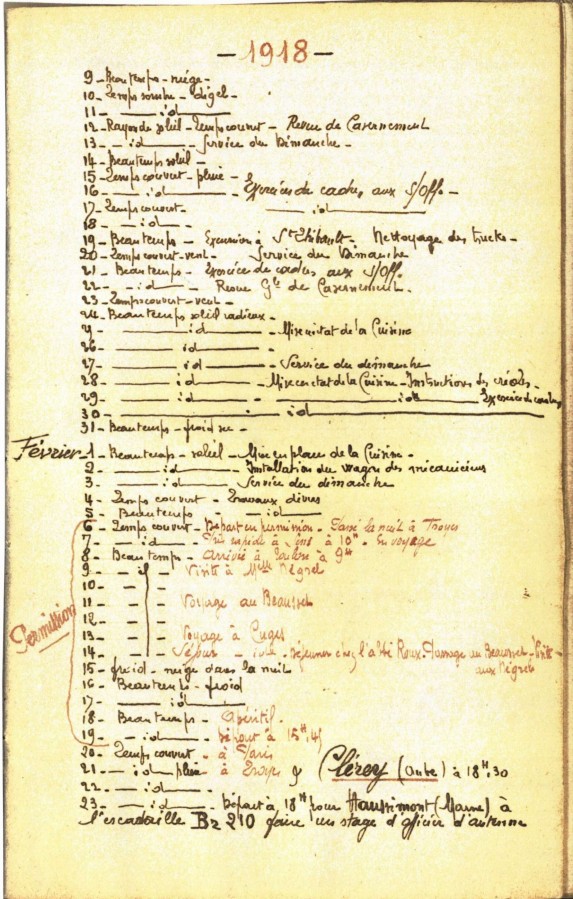 — 1918 —
9 - Beau temps - neige -
10 - Temps sombre - dégel -
11 - — id —
12 - Rayon de soleil - Temps couvert - Revue de Casernement
13 - — id — Service du Dimanche -
14 - Beau temps soleil -
15 - Temps couvert - pluie -
16 - — id — - Exercices de cadres aux S/off. -
17 - Temps couvert - — id —
18 - — id -
19 - Beau temps - Excursion à St Thibault - Nettoyage des trucks -
20 - Temps couvert - vent - Service du Dimanche
21 - Beau temps - Exercice de cadres aux S/off.
22 - — id — - Revue Gle de Casernement.
23 - Temps couvert - vent -
24 - Beau temps soleil radieux -
— id — - Mise en état de la Cuisine
26 - — id — -
27 - — id — - Service du dimanche
28 - — id — - Mise en état de la Cuisine - Instructions des créoles -
29 - — id — - — id — Exercice de cadres
30 — id —
31 - Beau temps - froid sec -
Février 1 - Beau temps - soleil - Mise en place de la Cuisine -
2 - — id — - Installation du wagon des mécaniciens
3 - — id — Service du dimanche
4 - Temps couvert - Travaux divers
5 - Beau temps - — id —
6 - Temps couvert - Départ en permission - Passé la nuit à Troyes
7 - — id — - Pris rapide à à 10h - En voyage
8 - Beau temps - Arrivée à Toulon à 9H
9 - - id - Visite à Melle Négrel
10 -
11 - - Voyage au Beausset
12 -
13 - - Voyage à Cuges
14 - - Séjour - id - Déjeuner chez l'abbé Roux. Passage au Beausset - Visite
aux Négrel
Permission
15 - froid - neige dans la nuit
16 - Beau temps - froid
17 - — id —
18 - Beau temps - Apéritif -
19 - — id — - Départ à 15H,45
20 - Temps couvert - à Paris
21 - — id pluie à Troyes & Clérey (Aube) à 18H,30
22 - — id —
23 - — id — - Départ à 18H pour Haussimont (Marne) à
l'escadrille Br 210 faire un stage d'officier d'antenne